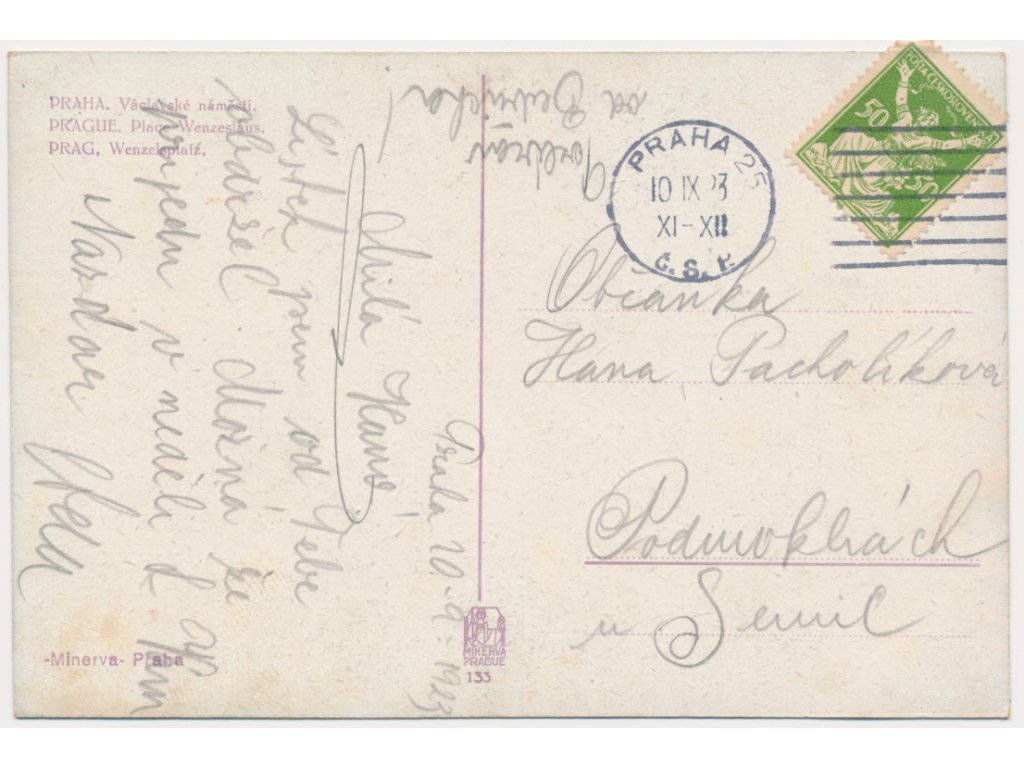 PRAHA. Václavské náměstí.
PRAGUE. Place Wenzeslaus.
PRAG, Wenzelsplatz.
Praha 10.9.1923
Milá Hani
Lístek jsem od Tebe
obdržel Možná že
přijedu v neděli
Nazdar
Pozdrav
od
POŠTA ČESKOSLOVENSKÁ
50
50
PRAHA 25
10 IX 23
XI-XII
Č. S. P.
Občanka
Hana Pacholíková
Podmoklrách
u Semil
-Minerva- Praha
MINERVA
PRAGUE
133